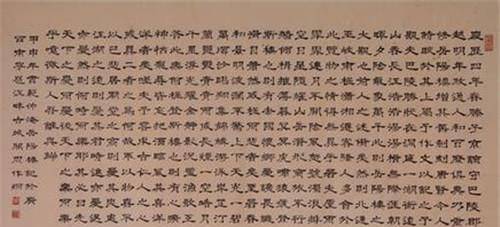 慶歷四年春滕子京謫守巴陵郡
越明年政通人和百廢俱興乃重
修岳陽樓增其舊制刻唐賢今人
詩賦於其上屬予作文以記之予
觀夫巴陵勝狀在洞庭一湖銜遠
山吞長江浩浩湯湯橫無際涯朝
暉夕陰氣象萬千此則岳陽樓之
大觀也前人之述備矣然則北通
巫峽南極瀟湘遷客騷人多會於
此覽物之情得無異乎若夫霪雨
霏霏連月不開陰風怒號濁浪排
空日星隱曜山岳潛形商旅不行
檣傾楫摧薄暮冥冥虎嘯猿啼登
斯樓也則有去國懷鄉憂讒畏譏
滿目蕭然感極而悲者矣至若春
和景明波瀾不驚上下天光一碧
萬頃沙鷗翔集錦鱗游泳岸芷汀
蘭郁郁青青而或長煙一空皓月
千里浮光躍金靜影沉璧漁歌互
答此樂何極登斯樓也則有心曠
神怡寵辱皆忘把酒臨風其喜洋
洋者矣嗟夫予嘗求古仁人之心
或異二者之為何哉不以物喜不
以己悲居廟堂之高則憂其民處
江湖之遠則憂其君是進亦憂退
亦憂然則何時而樂耶其必曰先
天下之憂而憂後天下之樂而樂
乎噫微斯人吾誰與歸
甲申年書范仲淹岳陽樓記於廣
西南寧邕江畔古城閣周作